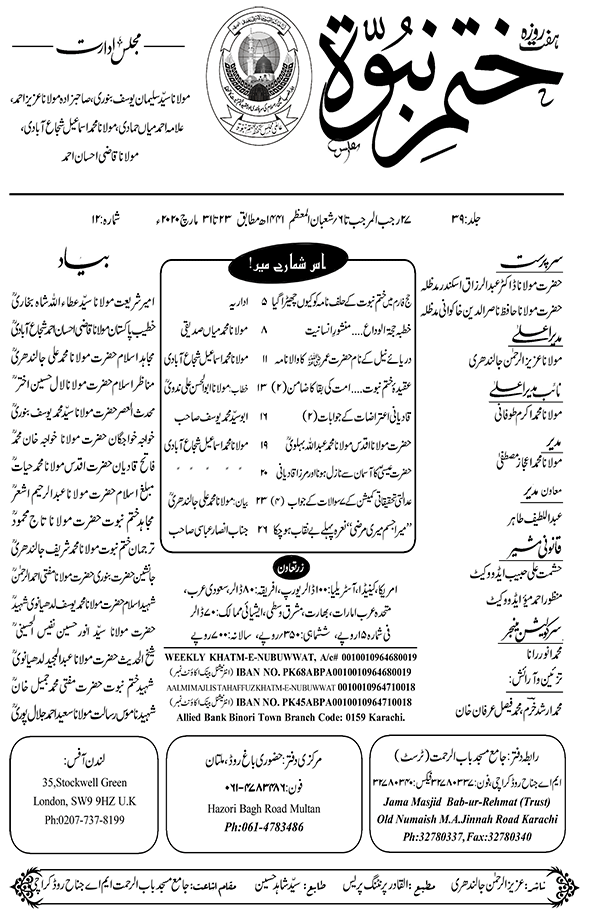 ہفت روزہ
ختم نبوۃ
مجلس ادارت
مولانا سید سلیمان یوسف بنوری، صاحبزادہ مولانا عزیز احمد،
علامہ احمد میاں حمادی، مولانا محمد اسماعیل شجاع آبادی،
مولانا قاضی احسان احمد
جلد: ۳۹
۲۷ رجب المرجب تا ۶/ شعبان المعظم ۱۴۴۱ھ مطابق ۲۳ تا ۳۱ مارچ ۲۰۲۰ء
شمارہ: ۱۲
سرپرست
حضرت مولانا ڈاکٹر عبدالرزاق اسکندر مدظلہ
حضرت مولانا حافظ ناصر الدین خاکوانی مدظلہ
مدیر اعلیٰ
مولانا عزیز الرحمٰن جالندھری
نائب مدیر اعلیٰ
مولانا محمد اکرم طوفانی
مدیر
مولانا محمد اعجاز مصطفیٰ
معاون مدیر
عبداللطیف طاہر
قانونی مشیر
حشمت علی حبیب ایڈووکیٹ
منظور احمد میو ایڈووکیٹ
سرکولیشن منیجر
محمد انور رانا
تزئین و آرائش:
محمد ارشد خرم، محمد فیصل عرفان خان
اس شمارے میں!
حج فارم میں ختم نبوت کے حلف نامہ کو کیوں چھیڑا گیا ۵ اداریہ
خطبہ حجۃ الوداع.... منشور انسانیت ۸ مولانا محمد میاں صدیقی
دریائے نیل کے نام حضرت عمرؓ کا والا نامہ ۱۱ مولانا محمد اسماعیل شجاع آبادی
عقیدۂ ختم نبوت.... امت کی بقا کا ضامن (۲) ۱۳ خطاب: مولانا ابوالحسن علی ندویؒ
قادیانی اعتراضات کے جوابات (۲) ۱۶ ابو سید محمد یوسف صاحب
حضرت مولانا اقدس مولانا محمد عبداللہ بہلویؒ ۱۹ مولانا محمد اسماعیل شجاع آبادی
حضرت عیسیٰؑ کا آسمان سے نازل ہونا اور مرزا قادیانی ۲۰ " " " "
عدالتی تحقیقاتی کمیشن کے ۷ سوالات کے جواب (۴) ۲۳ بیان: مولانا محمد علی جالندھریؒ
"میرا جسم میری مرضی" نعرہ پہلے بے نقاب ہو چکا ۲۶ جناب انصار عباسی صاحب
زرتعاون
امریکا، کینیڈا، آسٹریلیا: ۱۰۰ ڈالر یورپ، افریقہ: ۸۰ ڈالر، سعودی عرب،
متحدہ عرب امارات، بھارت، مشرق وسطیٰ، ایشیائی ممالک: ۷۰ ڈالر
فی شمارہ ۱۵ روپے، ششماہی: ۳۵۰ روپے، سالانہ: ۷۰۰ روپے
WEEKLY KHATM-E-NUBUWWAT, A/c# 0010010964680019
IBAN NO. PK68ABPA0010010964680019 (انٹرنیشنل بینک اکاؤنٹ نمبر)
AALMIMAJLISTAHAFFUZKHATM-E-NUBUWWAT 0010010964710018
IBAN NO. PK45ABPA0010010964710018 (انٹرنیشنل بینک اکاؤنٹ نمبر)
Allied Bank Binori Town Branch Code: 0159 Karachi.
بیاد
امیر شریعت مولانا سید عطاء اللہ شاہ بخاریؒ
خطیب پاکستان مولانا قاضی احسان احمد شجاع آبادیؒ
مجاہد اسلام حضرت مولانا محمد علی جالندھریؒ
مناظر اسلام حضرت مولانا لال حسین اخترؒ
محدث العصر حضرت مولانا سید محمد یوسف بنوریؒ
خواجہ خواجگان حضرت مولانا خواجہ خان محمدؒ
فاتح قادیان حضرت اقدس مولانا محمد حیاتؒ
مبلغ اسلام حضرت مولانا عبدالرحیم اشعرؒ
مجاہد ختم نبوت حضرت مولانا تاج محمودؒ
ترجمان ختم نبوت مولانا محمد شریف جالندھریؒ
جانشین حضرت بنوری حضرت مولانا مفتی احمد الرحمٰنؒ
شہید اسلام حضرت مولانا محمد یوسف لدھیانوی شہیدؒ
حضرت مولانا سید انور حسین نفیس الحسینیؒ
شیخ الحدیث حضرت مولانا عبدالمجید لدھیانویؒ
شہید ختم نبوت حضرت مفتی محمد جمیل خانؒ
شہید ناموس رسالت مولانا سعید احمد جلال پوریؒ
رابطہ دفتر: جامع مسجد باب الرحمت (ٹرسٹ)
ایم اے جناح روڈ کراچی، فون: ۳۲۷۸۰۳۳۷ فیکس: ۳۲۷۸۰۳۴۰
Jama Masjid Bab-ur-Rehmat (Trust)
Old Numaish M.A.Jinnah Road Karachi
Ph:32780337, Fax:32780340
مرکزی دفتر: حضوری باغ روڈ، ملتان
فون: ۰۶۱-۴۷۸۳۴۸۶
Hazori Bagh Road Multan
Ph:061-4783486
لندن آفس:
35,Stockwell Green
London, SW9 9HZ U.K
Ph:0207-737-8199
ناشر: عزیز الرحمٰن جالندھری مطبع: القادر پرنٹنگ پریس طابع: سید شاہد حسین مقام اشاعت: جامع مسجد باب الرحمت ایم اے جناح روڈ کراچی